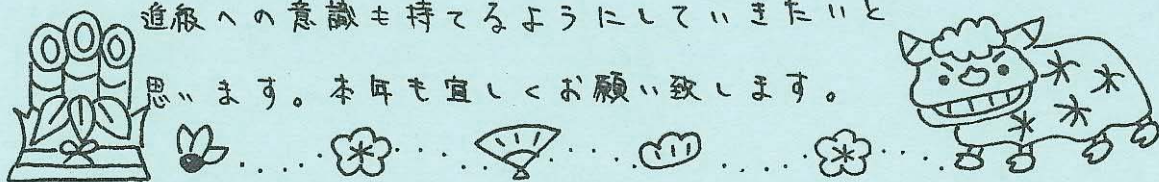 進級への意識も持てるようにしていきたいと
思います。本年も宜しくお願い致します。